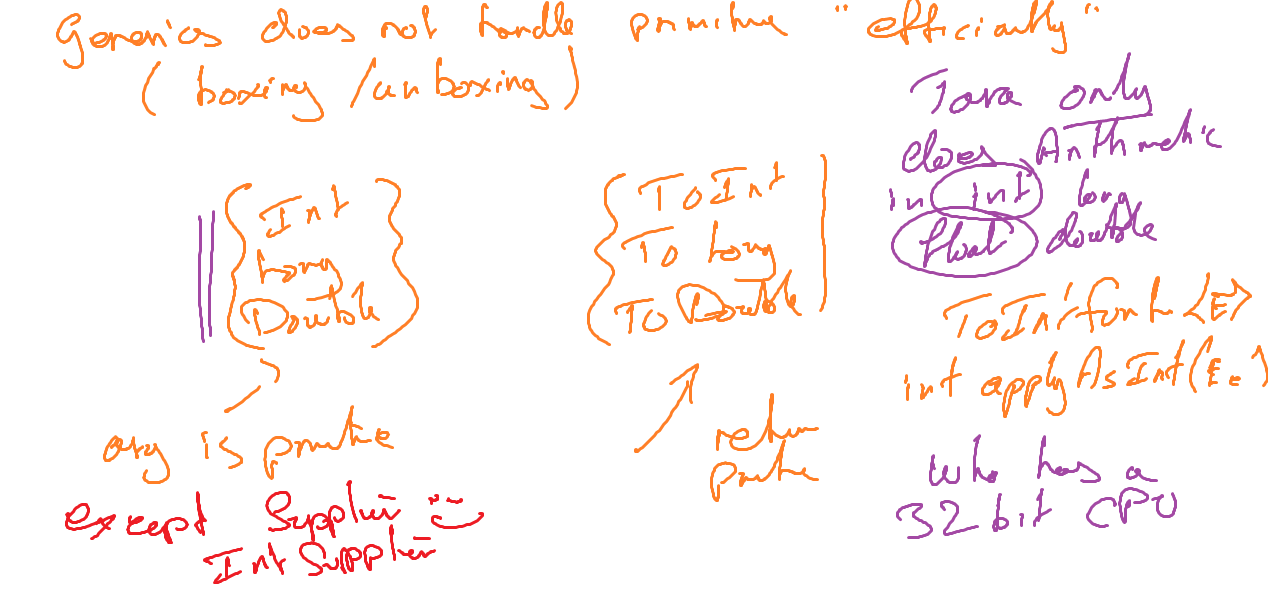 Generics does not handle primitive "efficiantly"
(boxing/unboxing)
Int
Long
Double
arg is primitive
except Supplier
IntSupplier
ToInt
To Long
To Double
return
primitive
Java only
does Arithmetic
in int long
float double
ToIntFunt <E>
int applyAsInt(E e)
Who has a
32 bit CPU